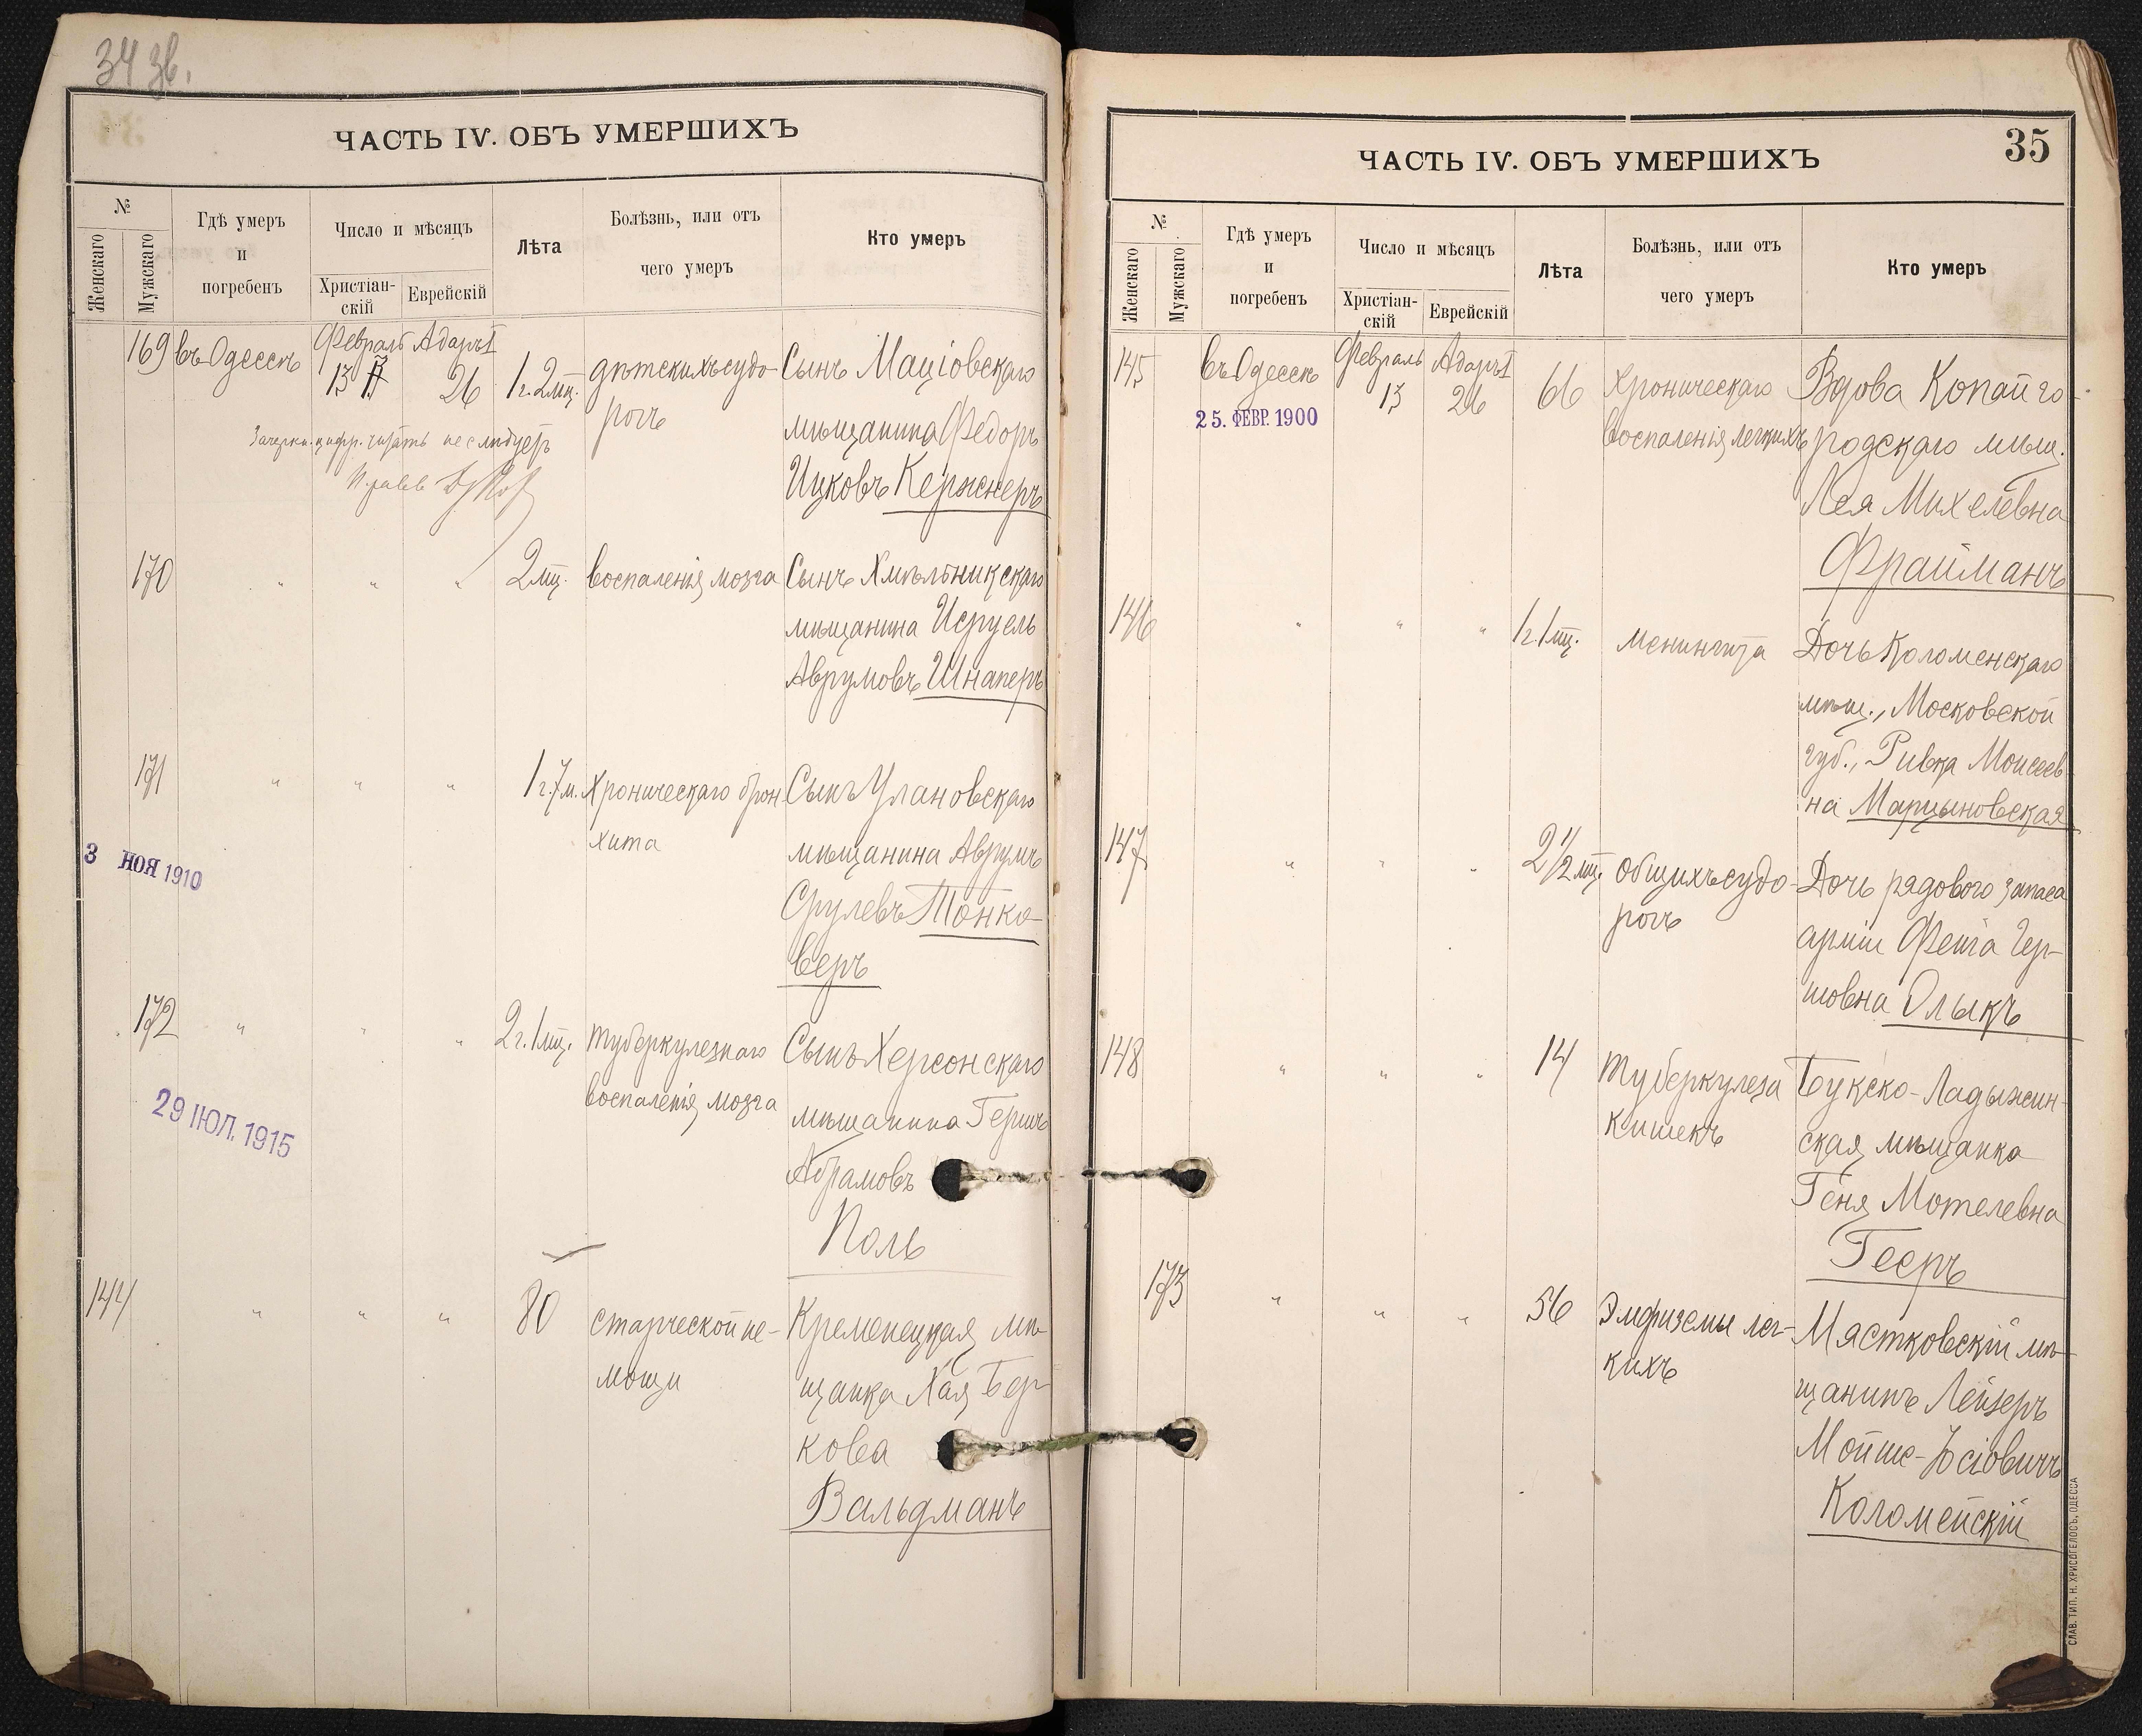 34 зв.
ЧАСТЬ IV. ОБЪ УМЕРШИХЪ
№
Женскаго
Мужскаго
Гдѣ умеръ
и
погребенъ
Число и мѣсяцъ
Христіан-
скій
Еврейскій
Лѣта
Болѣзнь, или отъ
чего умеръ
Кто умеръ
169
въ Одессѣ
Февраль
13
Адаръ I
26
1 г. 2 мц.
дѣтскихъ судо-
рогъ
Сынъ Маціовскаго
мѣщанина Федоръ
Ицковъ Кержнеръ
Зачеркн. цифр. читать не слѣдуетъ
170
"
"
"
2 мц.
воспаленія мозга
Сынъ Хмѣльникскаго
мѣщанина Исруель
Аврумовъ Шнаперъ
171
"
"
"
1 г. 7 м.
Хроническаго брон-
хита
Сынъ Улановскаго
мѣщанина Аврумъ
Срулевъ Тонко-
веръ
3 НОЯ 1910
172
"
"
"
2 г. 1 мц.
туберкулезнаго
воспаленія мозга
Сынъ Херсонскаго
мѣщанина Гершъ
Абрамовъ
Поль
29 ІЮЛ. 1915
144
"
"
"
80
старческой не-
мощи
Кременецкая мѣ-
щанка Хая Бер-
кова
Вальдманъ
35
ЧАСТЬ IV. ОБЪ УМЕРШИХЪ
№
Женскаго
Мужскаго
Гдѣ умеръ
и
погребенъ
Число и мѣсяцъ
Христіан-
скій
Еврейскій
Лѣта
Болѣзнь, или отъ
чего умеръ
Кто умеръ
145
въ Одессѣ
Февраль
13
Адаръ I
26
66
Хроническаго
воспаленія легкихъ
Вдова Копайго-
родскаго мѣщ.
Лея Михелевна
Фрайманъ
25. ФЕВР. 1900
146
"
"
"
1 г. 1 мц.
менингита
Дочь Коломенскаго
мѣщ., Московской
губ., Ривка Моисеев-
на Марцыновская
147
"
"
"
2 1/2 мц.
общихъ судо-
рогъ
Дочь рядового запаса
арміи Фейга Гер-
шовна Олыкъ
148
"
"
"
14
туберкулеза
кишекъ
Букско-Ладыжин-
ская мѣщанка
Геня Мотелевна
Гееръ
173
"
"
"
56
Эмфиземы лег-
кихъ
Мястковскій мѣ-
щанинъ Лейзеръ
Мойше-Іосіовичъ
Коломейскій
СЛАВ. ТИП. Н. ХРИСОГЕЛОСЪ, ОДЕССА